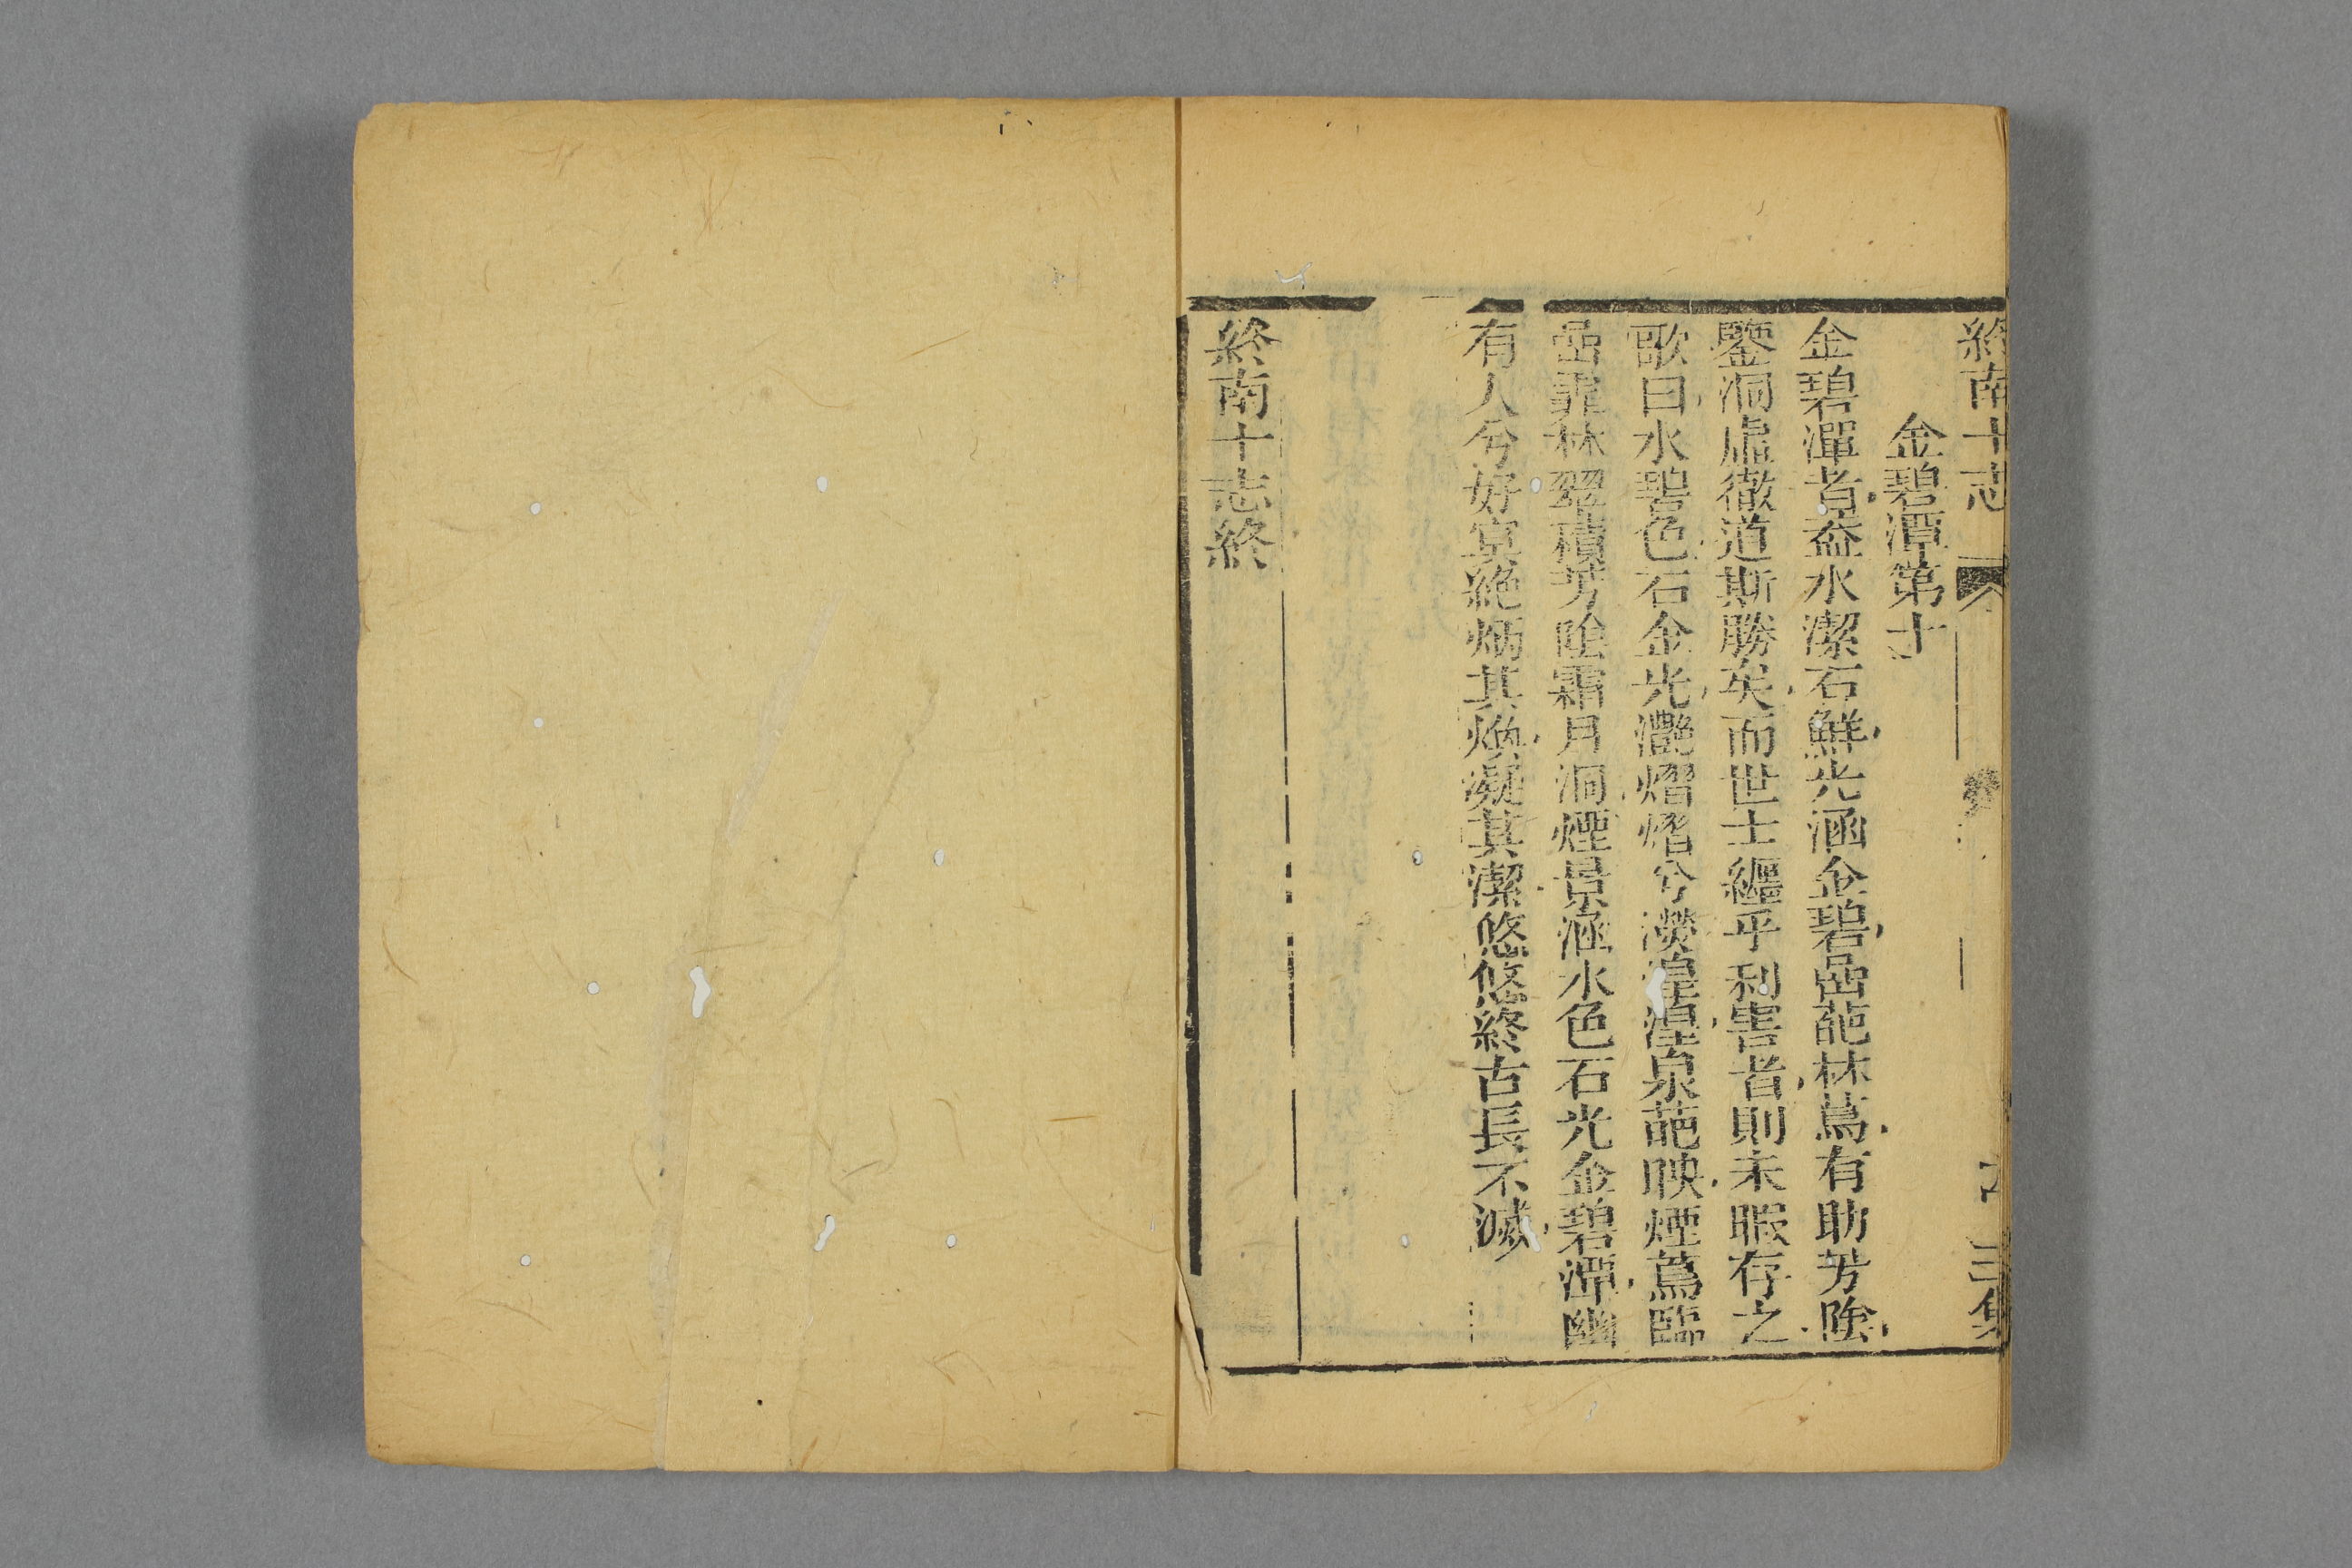 終南十志
三集
金碧潭第十
金碧潭者蓋水潔石鮮光涵金碧嵒葩林蔦有助芳陰
鑒洞虛徹道斯勝矣而世士纏乎利害者則未暇存之
歌曰水碧色石金光灔熠熠兮瀅湟湟泉葩映煙蔦臨
嵒霏林翠積芳陰霜月洞煙景涵水色石光金碧潭幽
有人兮好冥絶炳其煥凝其潔悠悠終古長不滅
終南十志終